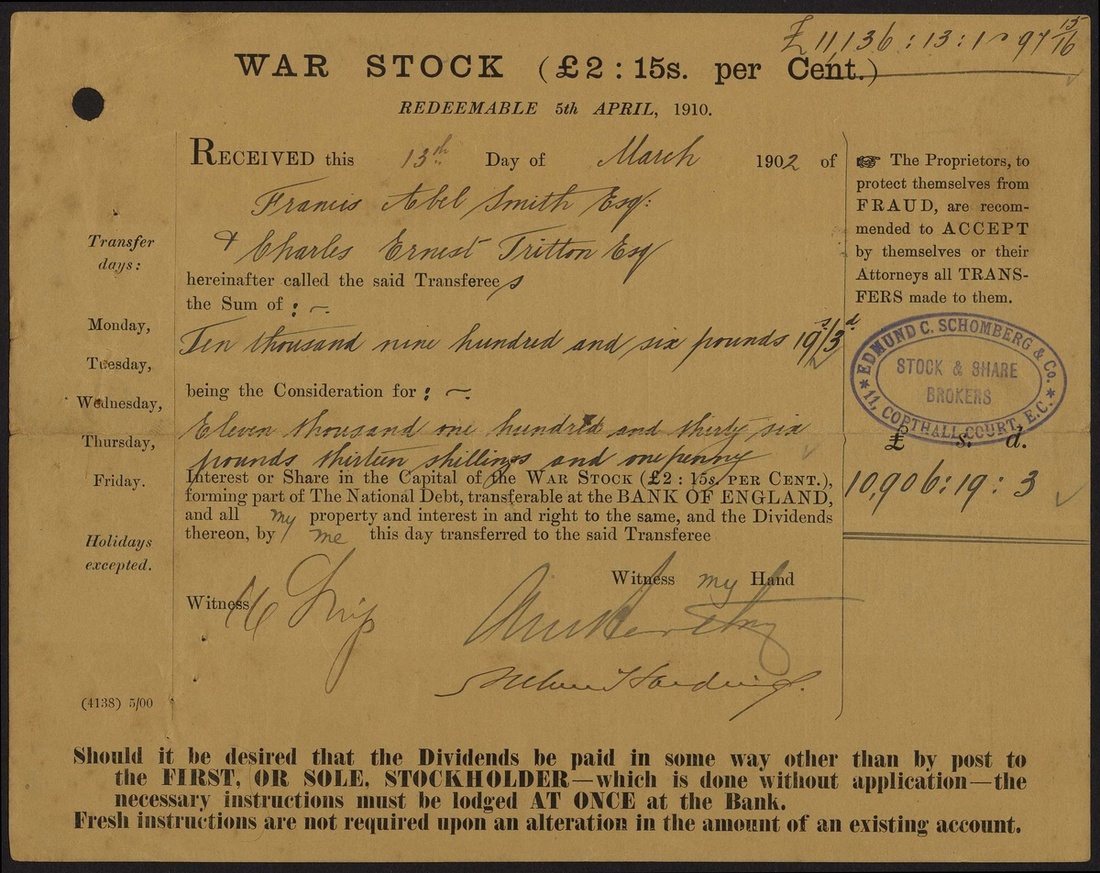 £11,136 : 13 : 1 ~ 97 15/16
WAR STOCK (£2 : 15s. per Cent.)
REDEEMABLE 5th APRIL, 1910.
RECEIVED this 13th Day of March 1902 of
Francis Abel Smith Esq:
& Charles Ernest Tritton Esq
hereinafter called the said Transferees
the Sum of : ~
Ten thousand nine hundred and six pounds 19s/3d
being the Consideration for : ~
Eleven thousand one hundred and thirty six
pounds thirteen shillings and one penny
Interest or Share in the Capital of the WAR STOCK (£2 : 15s. PER CENT.),
forming part of The National Debt, transferable at the BANK OF ENGLAND,
and all my property and interest in and right to the same, and the Dividends
thereon, by me this day transferred to the said Transferee
Witness my Hand
Witness
Transfer
days:
Monday,
Tuesday,
Wednesday,
Thursday,
Friday.
Holidays
excepted.
(4138) 5/00
☞ The Proprietors, to
protect themselves from
FRAUD, are recom-
mended to ACCEPT
by themselves or their
Attorneys all TRANS-
FERS made to them.
EDMUND C. SCHOMBERG & Co.
STOCK & SHARE
BROKERS
11, COPTHALL COURT, E.C.
£ s. d.
10,906 : 19 : 3
Should it be desired that the Dividends be paid in some way other than by post to
the FIRST, OR SOLE, STOCKHOLDER—which is done without application—the
necessary instructions must be lodged AT ONCE at the Bank.
Fresh instructions are not required upon an alteration in the amount of an existing account.